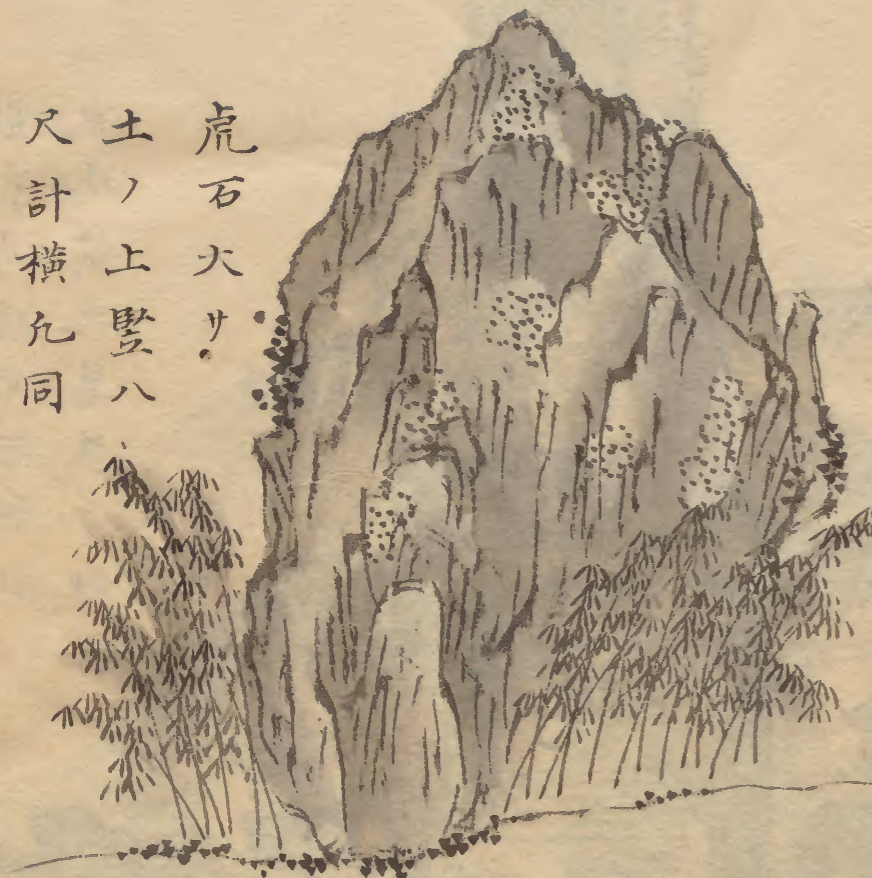 虎石大サ
土ノ上竪八
尺計横凢同